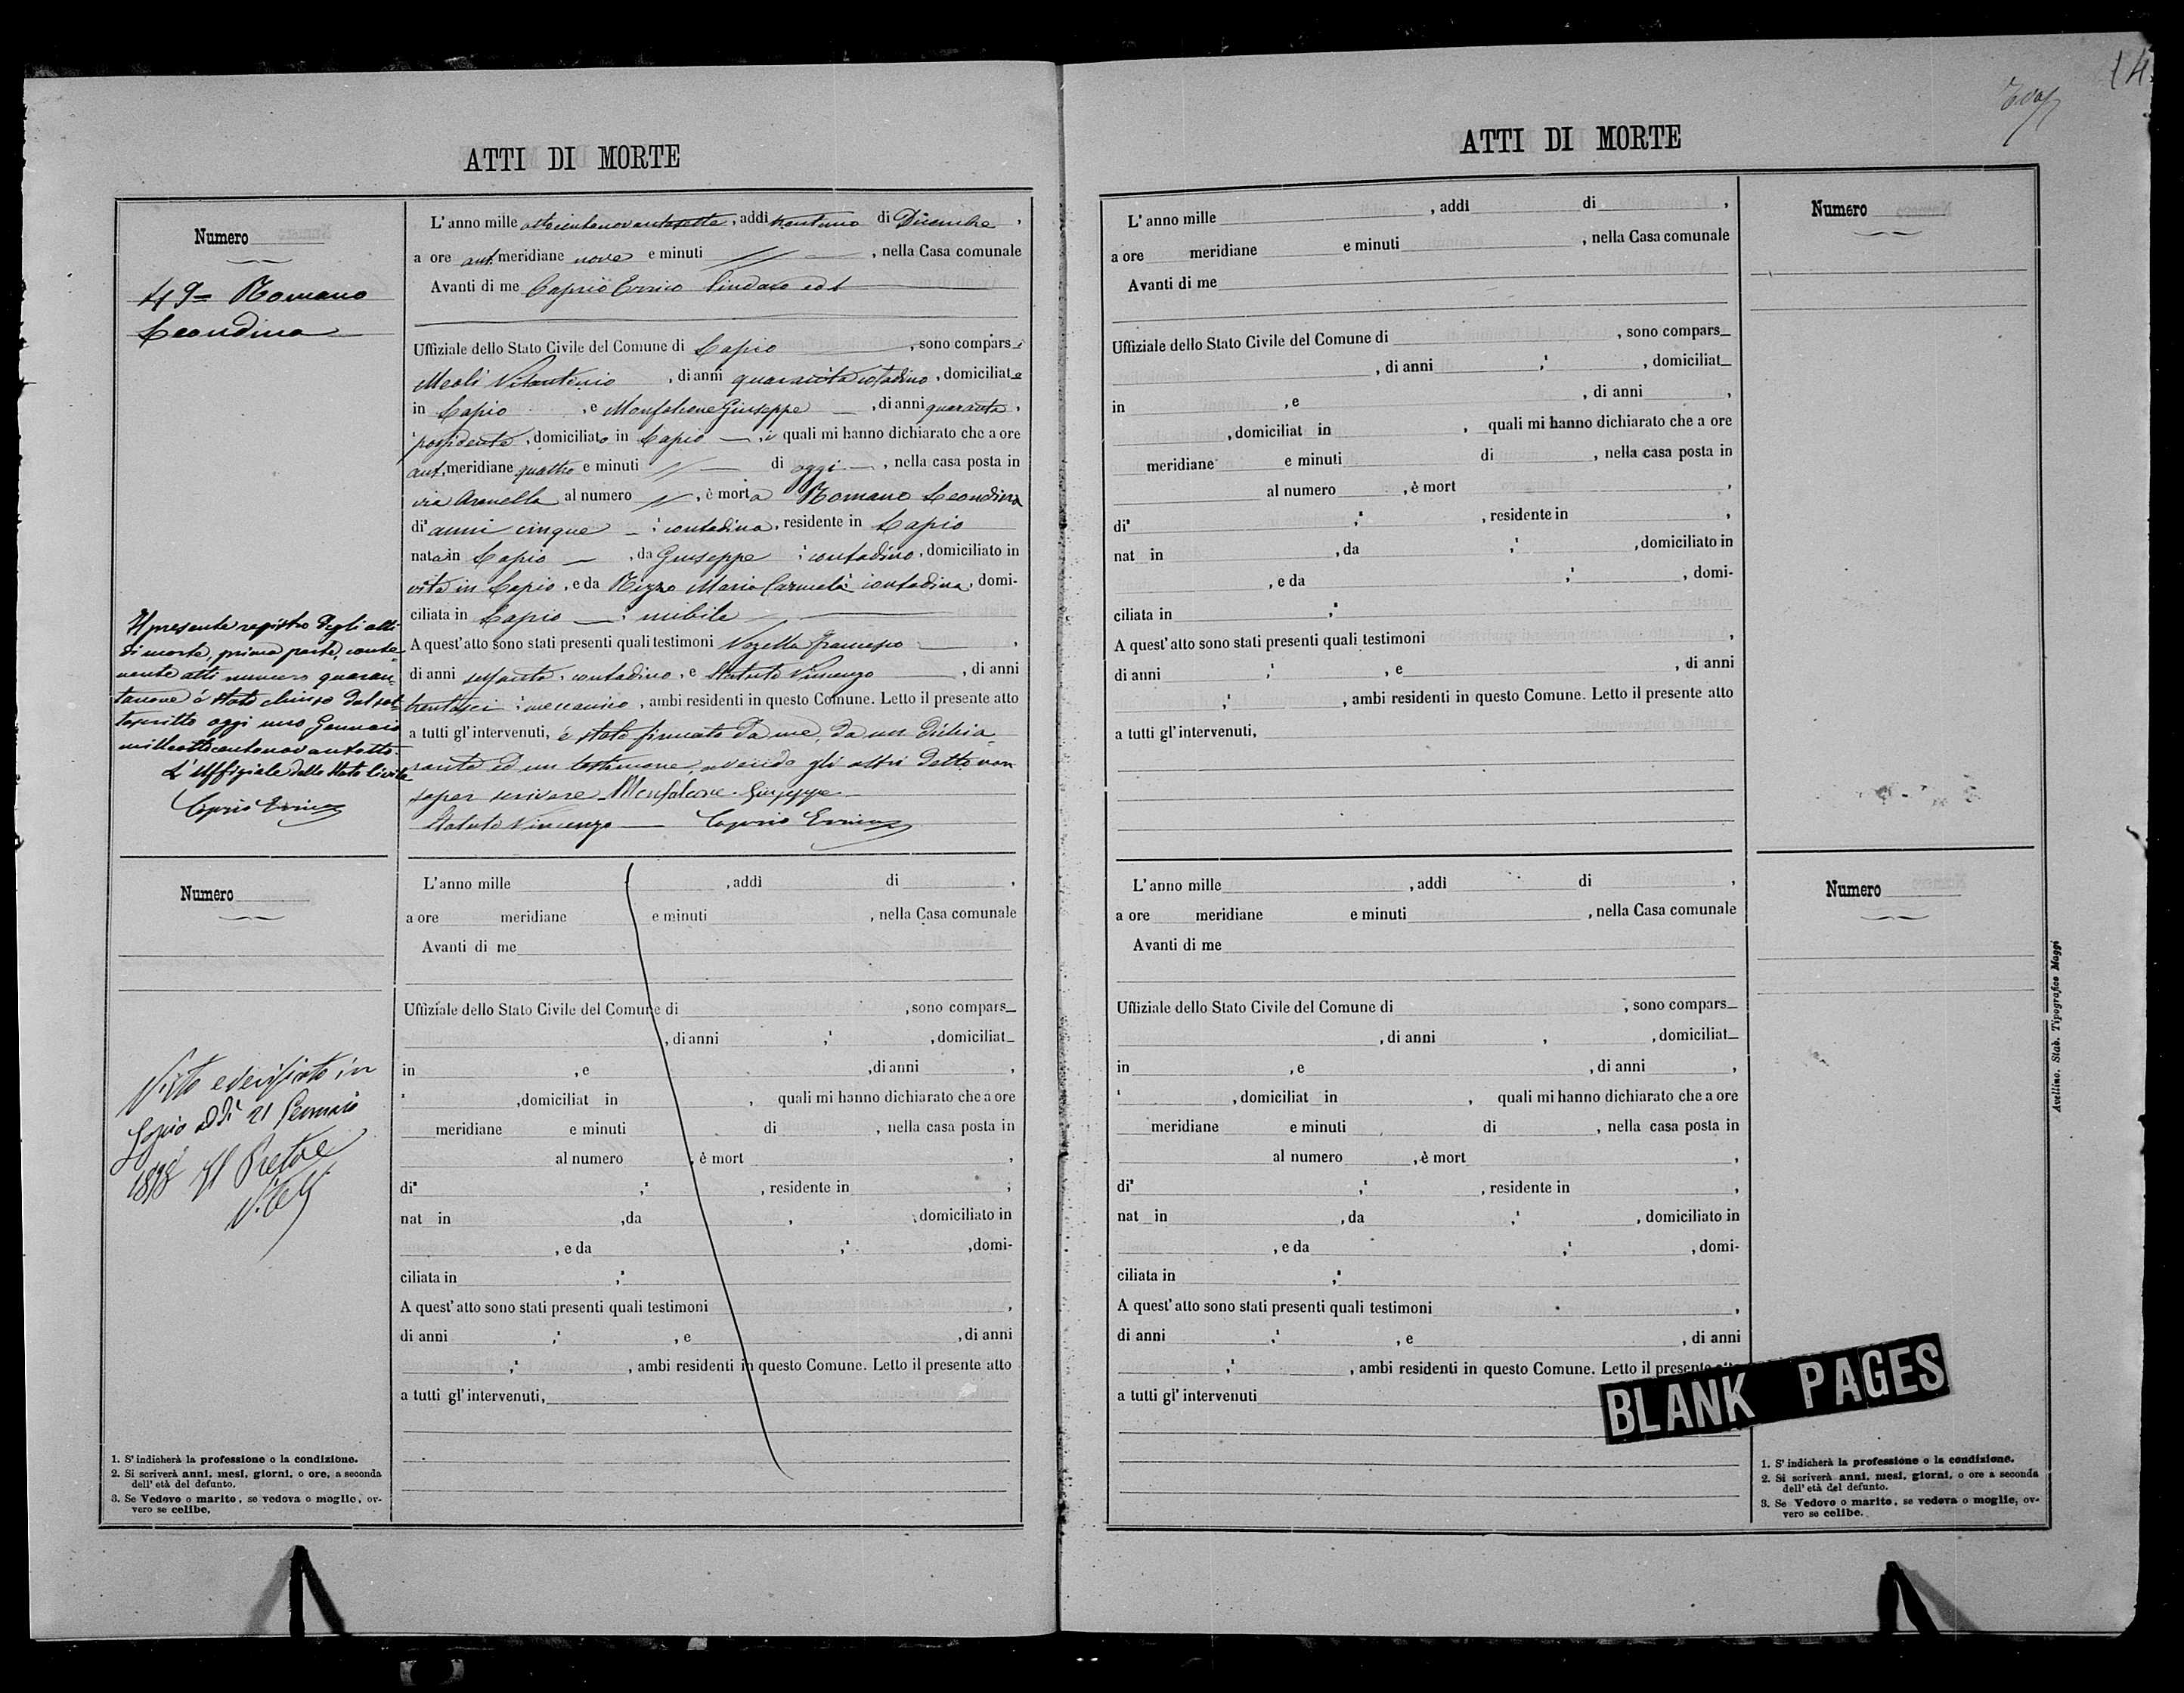 ATTI DI MORTE
Numero
49 = Romano
Leondina
L'anno mille ottocentonovantasette, addì trentuno di Dicembre,
a ore ant. meridiane nove e minuti //, nella Casa comunale
Avanti di me Caprio Errico Sindaco ed
Uffiziale dello Stato Civile del Comune di Lapio, sono comparsi
Meoli Vitantonio, di anni quaranta contadino, domiciliato
in Lapio, e Monfalcone Giuseppe, di anni quaranta,
possidente, domiciliato in Lapio, i quali mi hanno dichiarato che a ore
ant. meridiane quattro e minuti // di oggi, nella casa posta in
via Aranella al numero //, è morta Romano Leondina
di anni cinque, contadina, residente in Lapio
nata in Lapio, da Giuseppe, contadino, domiciliato in
vita in Lapio, e da Rizzo Maria Carmela contadina, domi-
ciliata in Lapio, nubile
A quest'atto sono stati presenti quali testimoni Vozella Francesco,
di anni sessanta, contadino, e Statuto Vincenzo, di anni
trentasei, meccanico, ambi residenti in questo Comune. Letto il presente atto
a tutti gl'intervenuti, è stato firmato da me, da un dichia-
rante ed un testimone, avendo gli altri detto non
saper scrivere Monfalcone Giuseppe
Statuto Vincenzo — Caprio Errico
Il presente registro degli atti
di morte, prima parte, conte-
nente atti numero quaran-
tanove è stato chiuso dal sot-
toscritto oggi uno Gennaio
milleottocentonovantotto.
L'Uffiziale dello Stato Civile
Caprio Errico
Numero
L'anno mille, addì di,
a ore meridiane e minuti, nella Casa comunale
Avanti di me
Uffiziale dello Stato Civile del Comune di, sono compars_
, di anni ; , domiciliat_
in , e , di anni ,
, domiciliat in , quali mi hanno dichiarato che a ore
meridiane e minuti di , nella casa posta in
al numero , è mort ,
di² ; , residente in ,
nat in , da , , domiciliato in
, e da ; , domi-
ciliata in ;
A quest'atto sono stati presenti quali testimoni ,
di anni ; , e , di anni
; , ambi residenti in questo Comune. Letto il presente atto
a tutti gl'intervenuti,
Visto e verificato in
Lapio addì 21 Gennaio
1898 Il Pretore
1. S'indicherà la professione o la condizione.
2. Si scriverà anni, mesi, giorni, o ore, a seconda
dell'età del defunto.
3. Se Vedovo o marito, se vedova o moglie, ov-
vero se celibe.
14
ATTI DI MORTE
L'anno mille , addì di ,
a ore meridiane e minuti , nella Casa comunale
Avanti di me
Uffiziale dello Stato Civile del Comune di , sono compars_
, di anni ; , domiciliat_
in , e , di anni ,
, domiciliat in , quali mi hanno dichiarato che a ore
meridiane e minuti di , nella casa posta in
al numero , è mort ,
di² ; , residente in ,
nat in , da ; , domiciliato in
, e da ; , domi-
ciliata in ;
A quest'atto sono stati presenti quali testimoni ,
di anni ; , e , di anni
; , ambi residenti in questo Comune. Letto il presente atto
a tutti gl'intervenuti,
Numero
L'anno mille , addì di ,
a ore meridiane e minuti , nella Casa comunale
Avanti di me
Uffiziale dello Stato Civile del Comune di , sono compars_
, di anni , , domiciliat_
in , e , di anni ,
, domiciliat in , quali mi hanno dichiarato che a ore
meridiane e minuti di , nella casa posta in
al numero , è mort ,
di² ; , residente in ,
nat in , da ; , domiciliato in
, e da ; , domi-
ciliata in ;
A quest'atto sono stati presenti quali testimoni ,
di anni ; , e , di anni
; , ambi residenti in questo Comune. Letto il presente
a tutti gl'intervenuti
Numero
BLANK PAGES
1. S'indicherà la professione o la condizione.
2. Si scriverà anni, mesi, giorni, o ore a seconda
dell'età del defunto.
3. Se Vedovo o marito, se vedova o moglie, ov-
vero se celibe.
Avellino, Stab. Tipografico Maggi